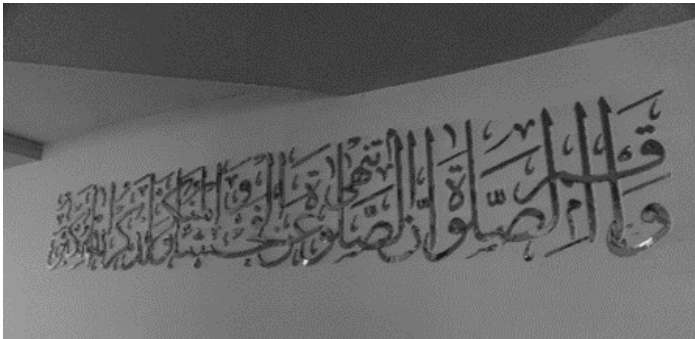 وأقم الصلوة إن الصلوة تنهى عن الفحشاء والمنكر ولذكر الله أكبر